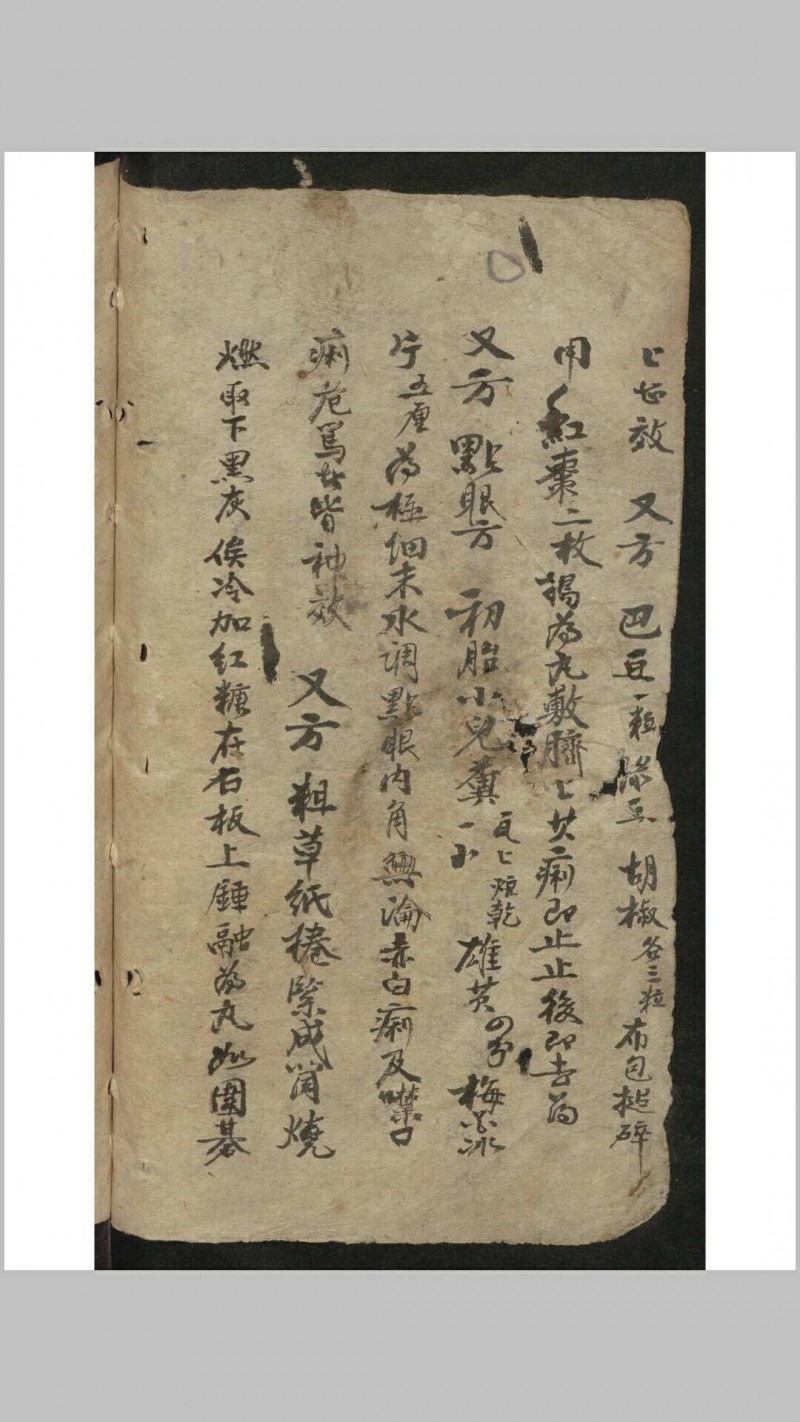 匕必效 又方 巴豆一粒 綠豆 胡椒各三粒 布包搥碎
用紅棗二枚搗為丸敷臍匕其痢即止止後即去為
又方 點眼方 初胎小兒糞一小 瓦匕焙乾 雄黄四分 梅冰
片五厘 為極細末水调點眼内角無論赤白痢及噤口
痢危篤者皆神效 又方 粗草紙捲緊成筒燒
燃取下黑灰俟冷加红糖在石板上錘融為丸如圍碁